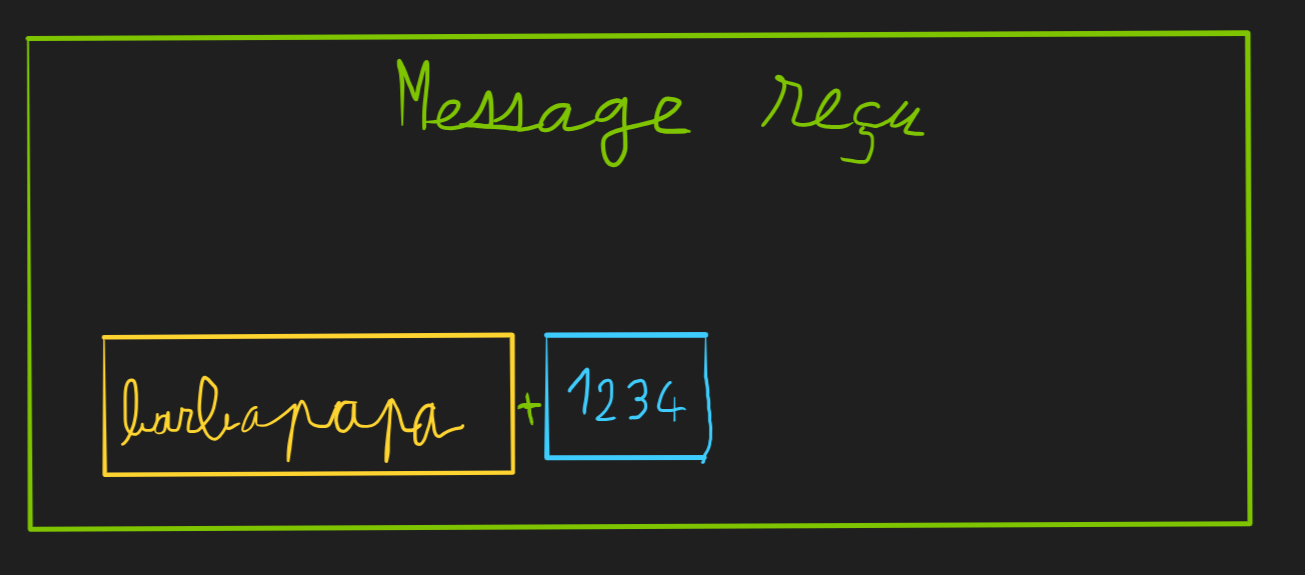 Message reçu
barbapapa + 1234